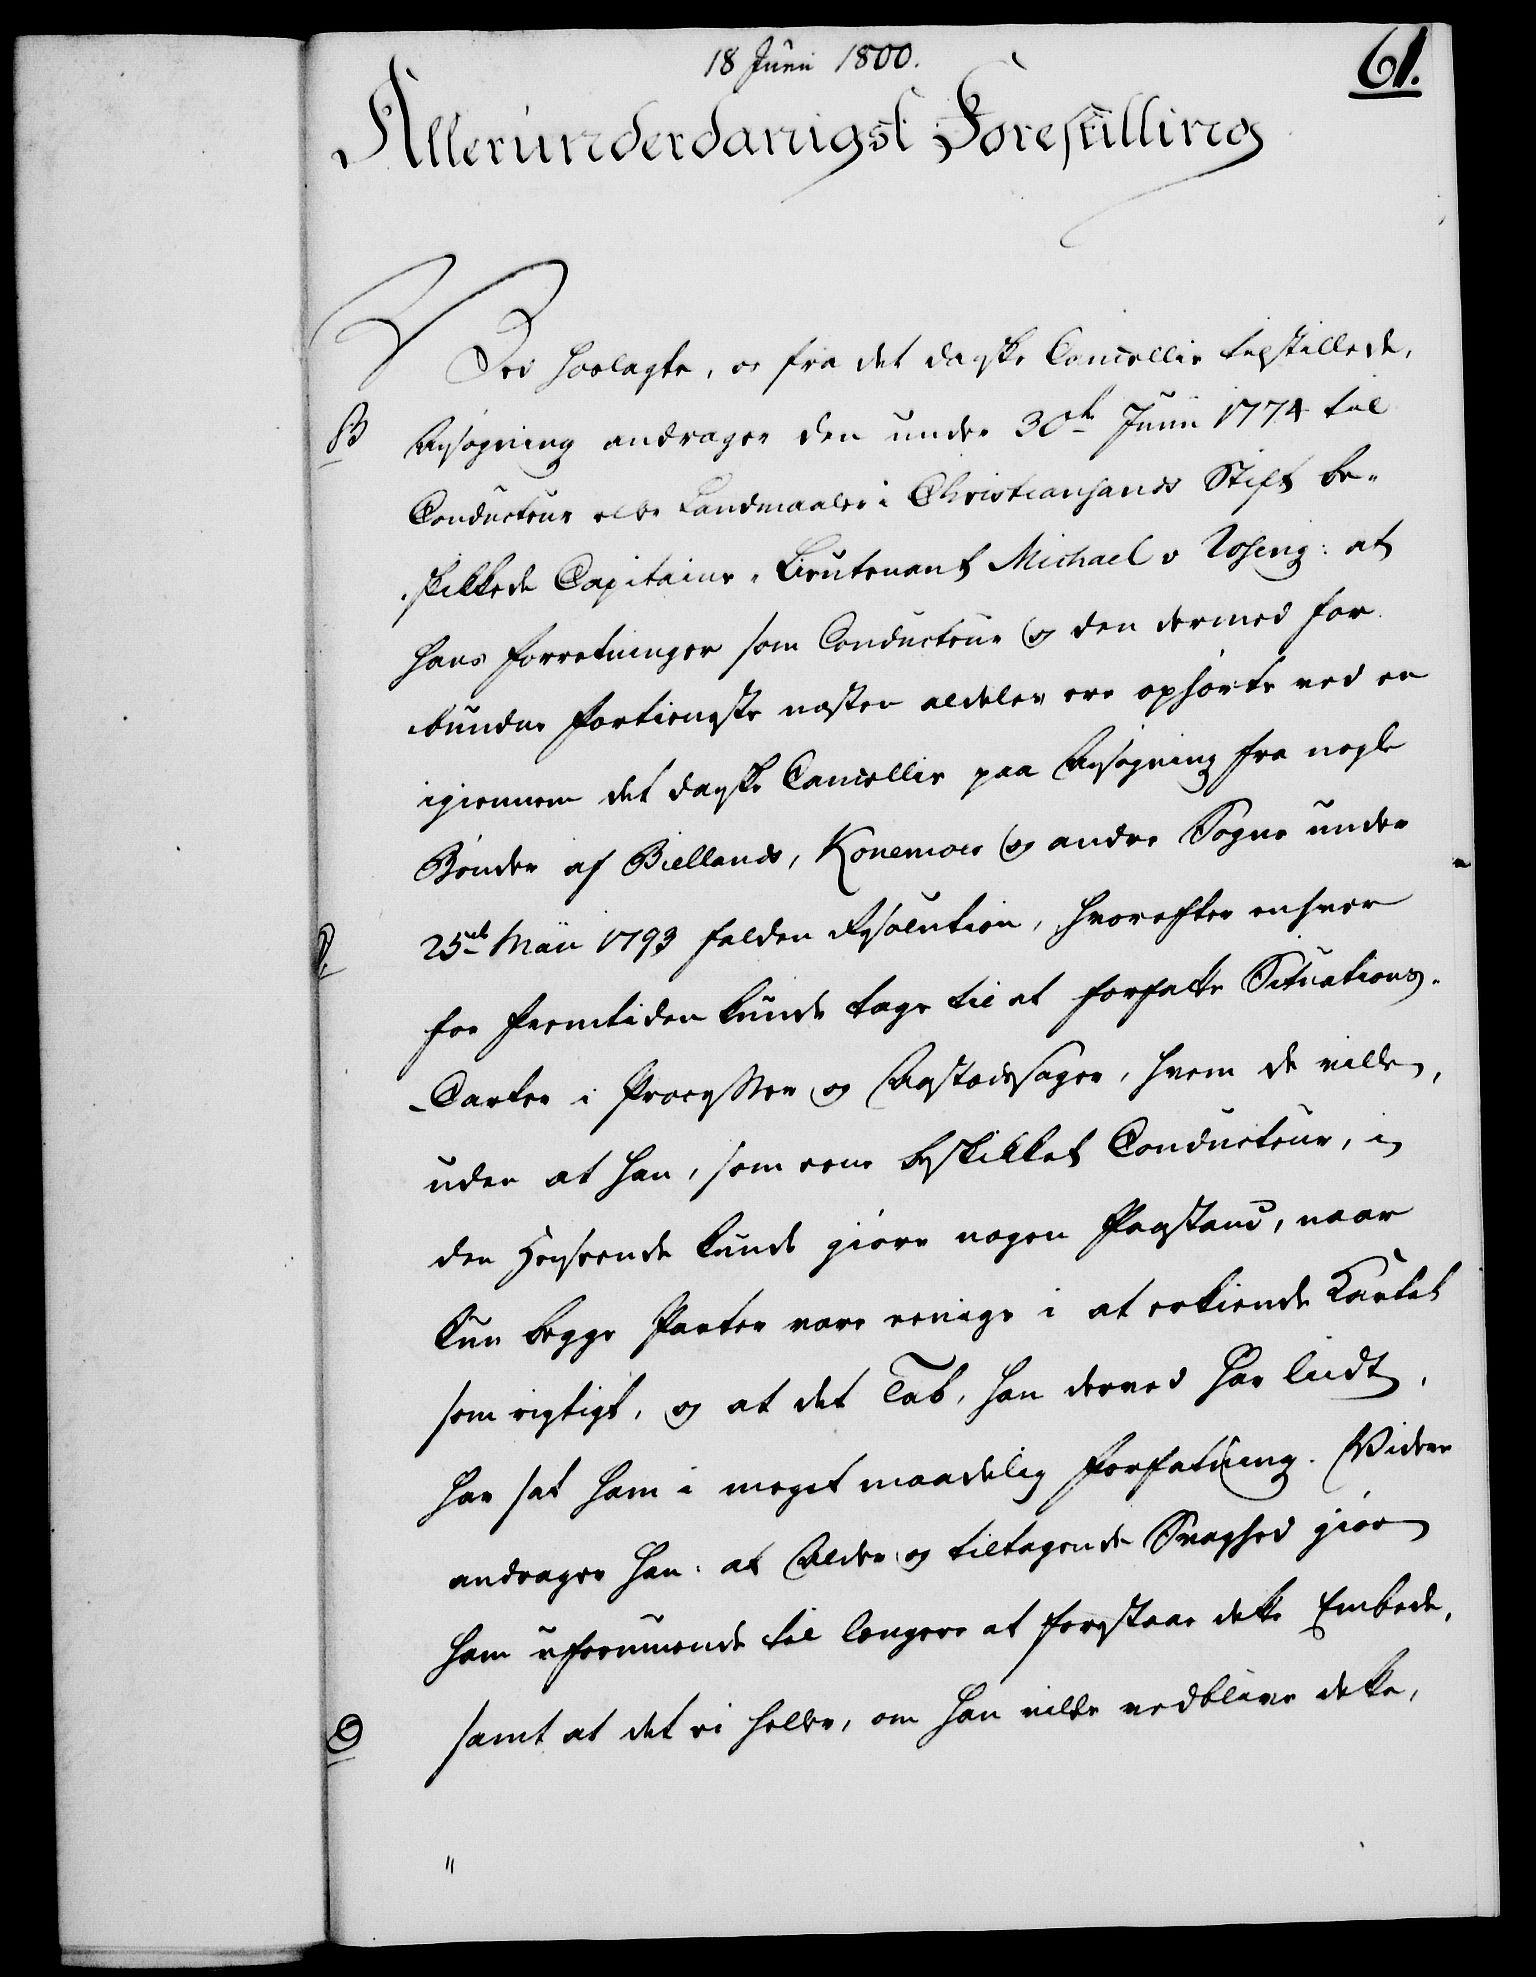 18 Junii 1800.
61.
Allerunderdanigst Forestilling
Ved hoslagte, os fra det danske Cancellie tilstillede,
B
Ansøgning andrager den under 30te Junii 1774 til
Conducteur eller Landmaaler i Christiansands Stift be-
skikkede Capitaine-Lieutenant Michael v Rosing: at
hans Forretninger som Conducteur og den dermed for-
bundne Fortieneste næsten aldeles ere ophørte ved en
igiennem det danske Cancellie paa Ansøgning fra nogle
Bønder af Biellands, Konsmoes og andre Sogne under
25de Maii 1793 falden Resolution, hvorefter enhver
for Fremtiden kunde tage til at forfatte Situations-
Carter i Processer og Aastædssager, hvem de vilde,
uden at han, som eene beskikket Conducteur, i
den Henseende kunde giøre nogen Paastand, naar
kun begge Parter vare eenige i at erkiende Kartet
som rigtigt, og at det Tab, han derved har liidt,
har sat ham i meget maadelig Forfatning. Videre
andrager han: at Alder og tiltagende Svaghed giør
ham uformuende til længere at forestaae dette Embede,
samt at det ei heller, om han vilde vedblive dette,
"